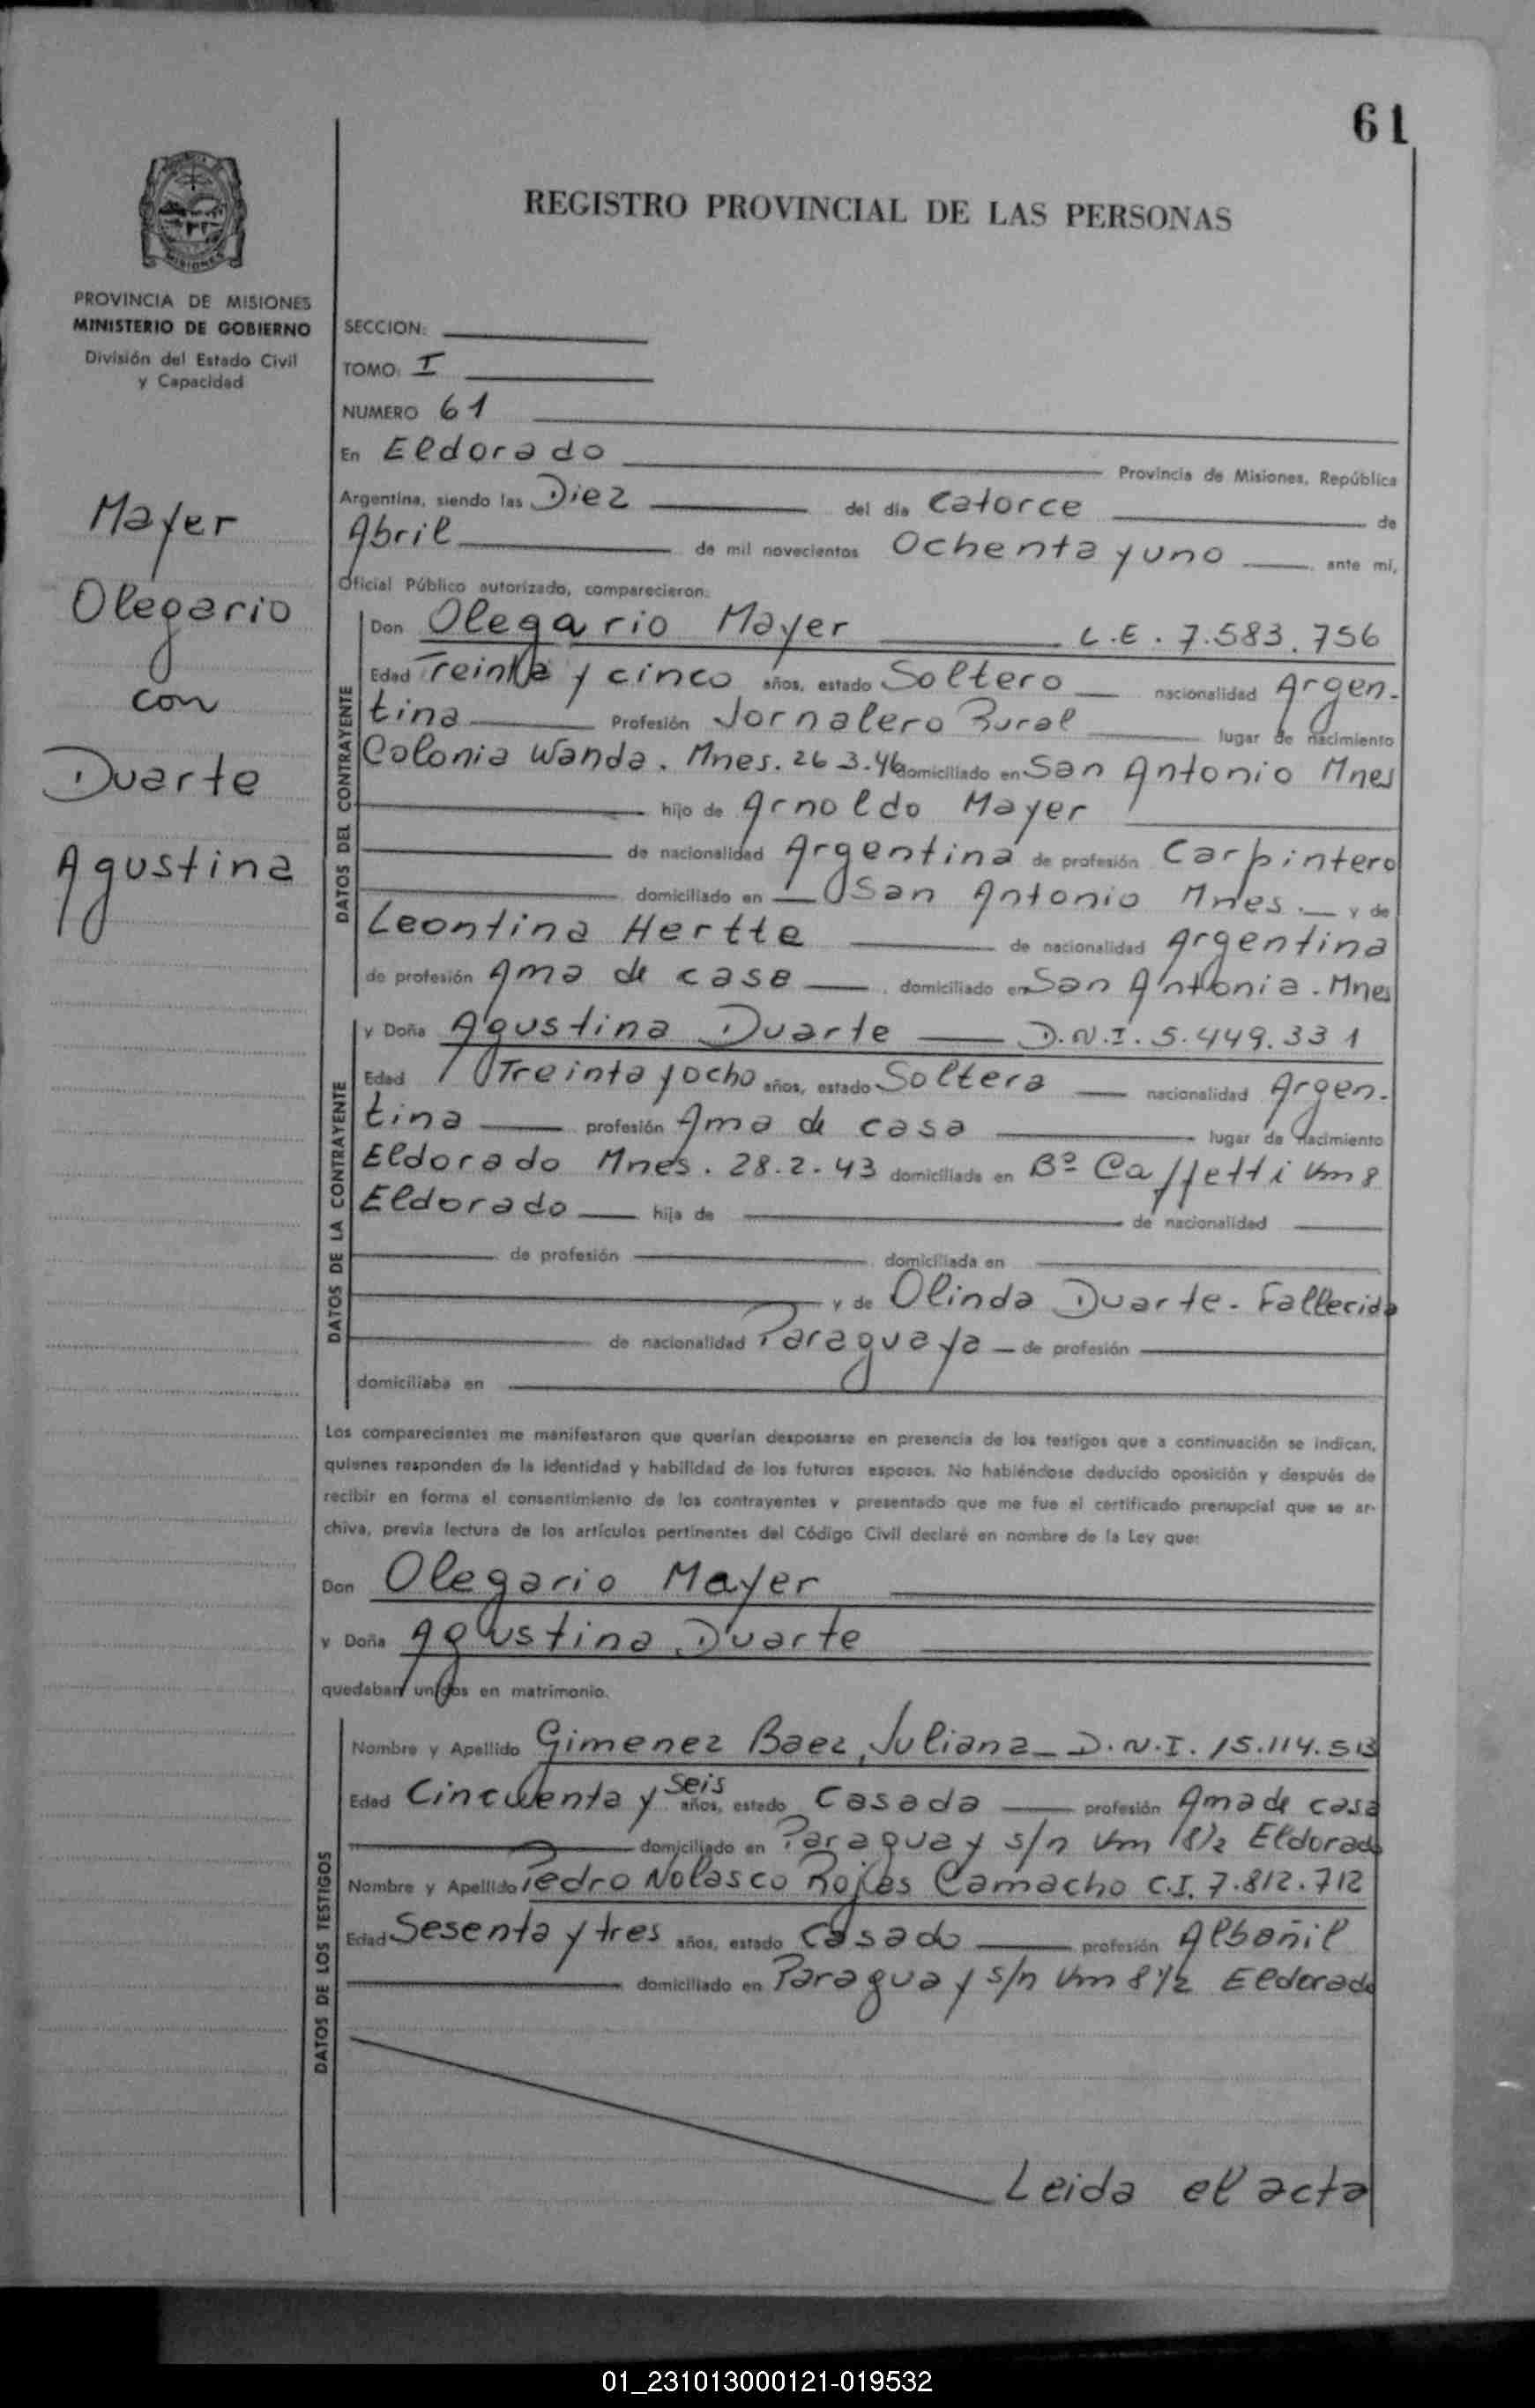 61
REGISTRO PROVINCIAL DE LAS PERSONAS
MISIONES
PROVINCIA DE MISIONES
MINISTERIO DE GOBIERNO
División del Estado Civil
y Capacidad
Mayer
Olegario
con
Duarte
Agustina
SECCION:
TOMO: I
NUMERO 61
En Eldorado Provincia de Misiones, República
Argentina, siendo las Diez del día Catorce de
Abril de mil novecientos Ochenta y uno ante mí,
Oficial Público autorizado, comparecieron:
DATOS DEL CONTRAYENTE
Don Olegario Mayer L.E. 7.583.756
Edad Treinta y cinco años, estado Soltero nacionalidad Argen-
tina Profesión Jornalero Rural lugar de nacimiento
Colonia Wanda. Mnes. 26 3.46 domiciliado en San Antonio Mnes
hijo de Arnoldo Mayer
de nacionalidad Argentina de profesión Carpintero
domiciliado en San Antonio Mnes. y de
Leontina Hertte de nacionalidad Argentina
de profesión Ama de casa domiciliado en San Antonia. Mnes
DATOS DE LA CONTRAYENTE
y Doña Agustina Duarte D.N.I. 5.449.331
Edad Treinta y ocho años, estado Soltera nacionalidad Argen-
tina profesión Ama de casa lugar de nacimiento
Eldorado Mnes. 28.2.43 domiciliada en Bº Caffetti Km 8
Eldorado hija de de nacionalidad
de profesión domiciliada en
y de Olinda Duarte - Fallecida
de nacionalidad Paraguaya de profesión
domiciliaba en
Los comparecientes me manifestaron que querían desposarse en presencia de los testigos que a continuación se indican,
quienes responden de la identidad y habilidad de los futuros esposos. No habiéndose deducido oposición y después de
recibir en forma el consentimiento de los contrayentes y presentado que me fue el certificado prenupcial que se ar-
chiva, previa lectura de los artículos pertinentes del Código Civil declaré en nombre de la Ley que:
Don Olegario Mayer
y Doña Agustina Duarte
quedaban unidos en matrimonio.
DATOS DE LOS TESTIGOS
Nombre y Apellido Gimenez Baez, Juliana - D.N.I. 15.114.513
Edad Cincuenta y Seis años, estado Casada profesión Ama de casa
domiciliado en Paraguay s/n Km 8½ Eldorado
Nombre y Apellido Pedro Nolasco Rojas Camacho C.I. 7.812.712
Edad Sesenta y tres años, estado Casado profesión Albañil
domiciliado en Paraguay s/n Km 8 ½ Eldorado
Leida el acta
01_231013000121-019532